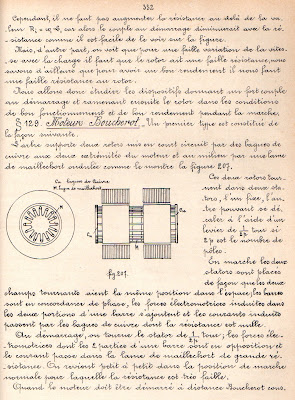 352
Cependant, il ne faut pas augmenter la résistance au delà de la va-
leur R₂ = ω₁ℒ₂ car alors le couple au démarrage diminuerait avec la ré-
sistance comme il est facile de le voir sur la figure.
Mais, d'autre part, on voit que pour une faible variation de la vites-
se avec la charge il faut que le rotor ait une faible résistance, nous
savons d'ailleurs que pour avoir un bon rendement il nous faut
une faible résistance au rotor.
Nous allons donc étudier les dispositifs donnant un fort couple
au démarrage et ramenant ensuite le rotor dans les conditions
de bon fonctionnement et de bon rendement pendant la marche.
§ 129. Moteurs Boucherot. Un premier type est constitué de
la façon suivante.
L'arbre supporte deux rotors mis en court circuit par des bagues de
cuivre aux deux extrémités du moteur et au milieu par une lame
de maillechort ondulée comme le montre la figure 207.
Ca bagues de Cuivre
M bague de maillechort
M
Ca
Ca
M
fig 207.
Ces deux rotors tour-
nent dans deux sta-
tors, l'un fixe, l'au-
tre pouvant se dé-
caler à l'aide d'un
levier de 1/2p tour si
2p est le nombre de
pôles.
En marche les deux
stators sont placés
de façon que les deux
champs tournants aient la même position dans l'espace; les barres
sont en concordance de phase, les forces électromotrices induites dans
les deux portions d'une barre s'ajoutent et les courants induits
passent par les bagues de cuivre dont la résistance est nulle.
Au démarrage, on tourne le stator de 1/2p tour; les forces élec-
tromotrices dont les 2 parties d'une barre sont en opposition et
le courant passe dans la lame de maillechort de grande ré-
sistance. On revient petit à petit dans la position de marche
normale pour laquelle la résistance est très faible.
Quand le moteur doit être démarré à distance Boucherot cons-